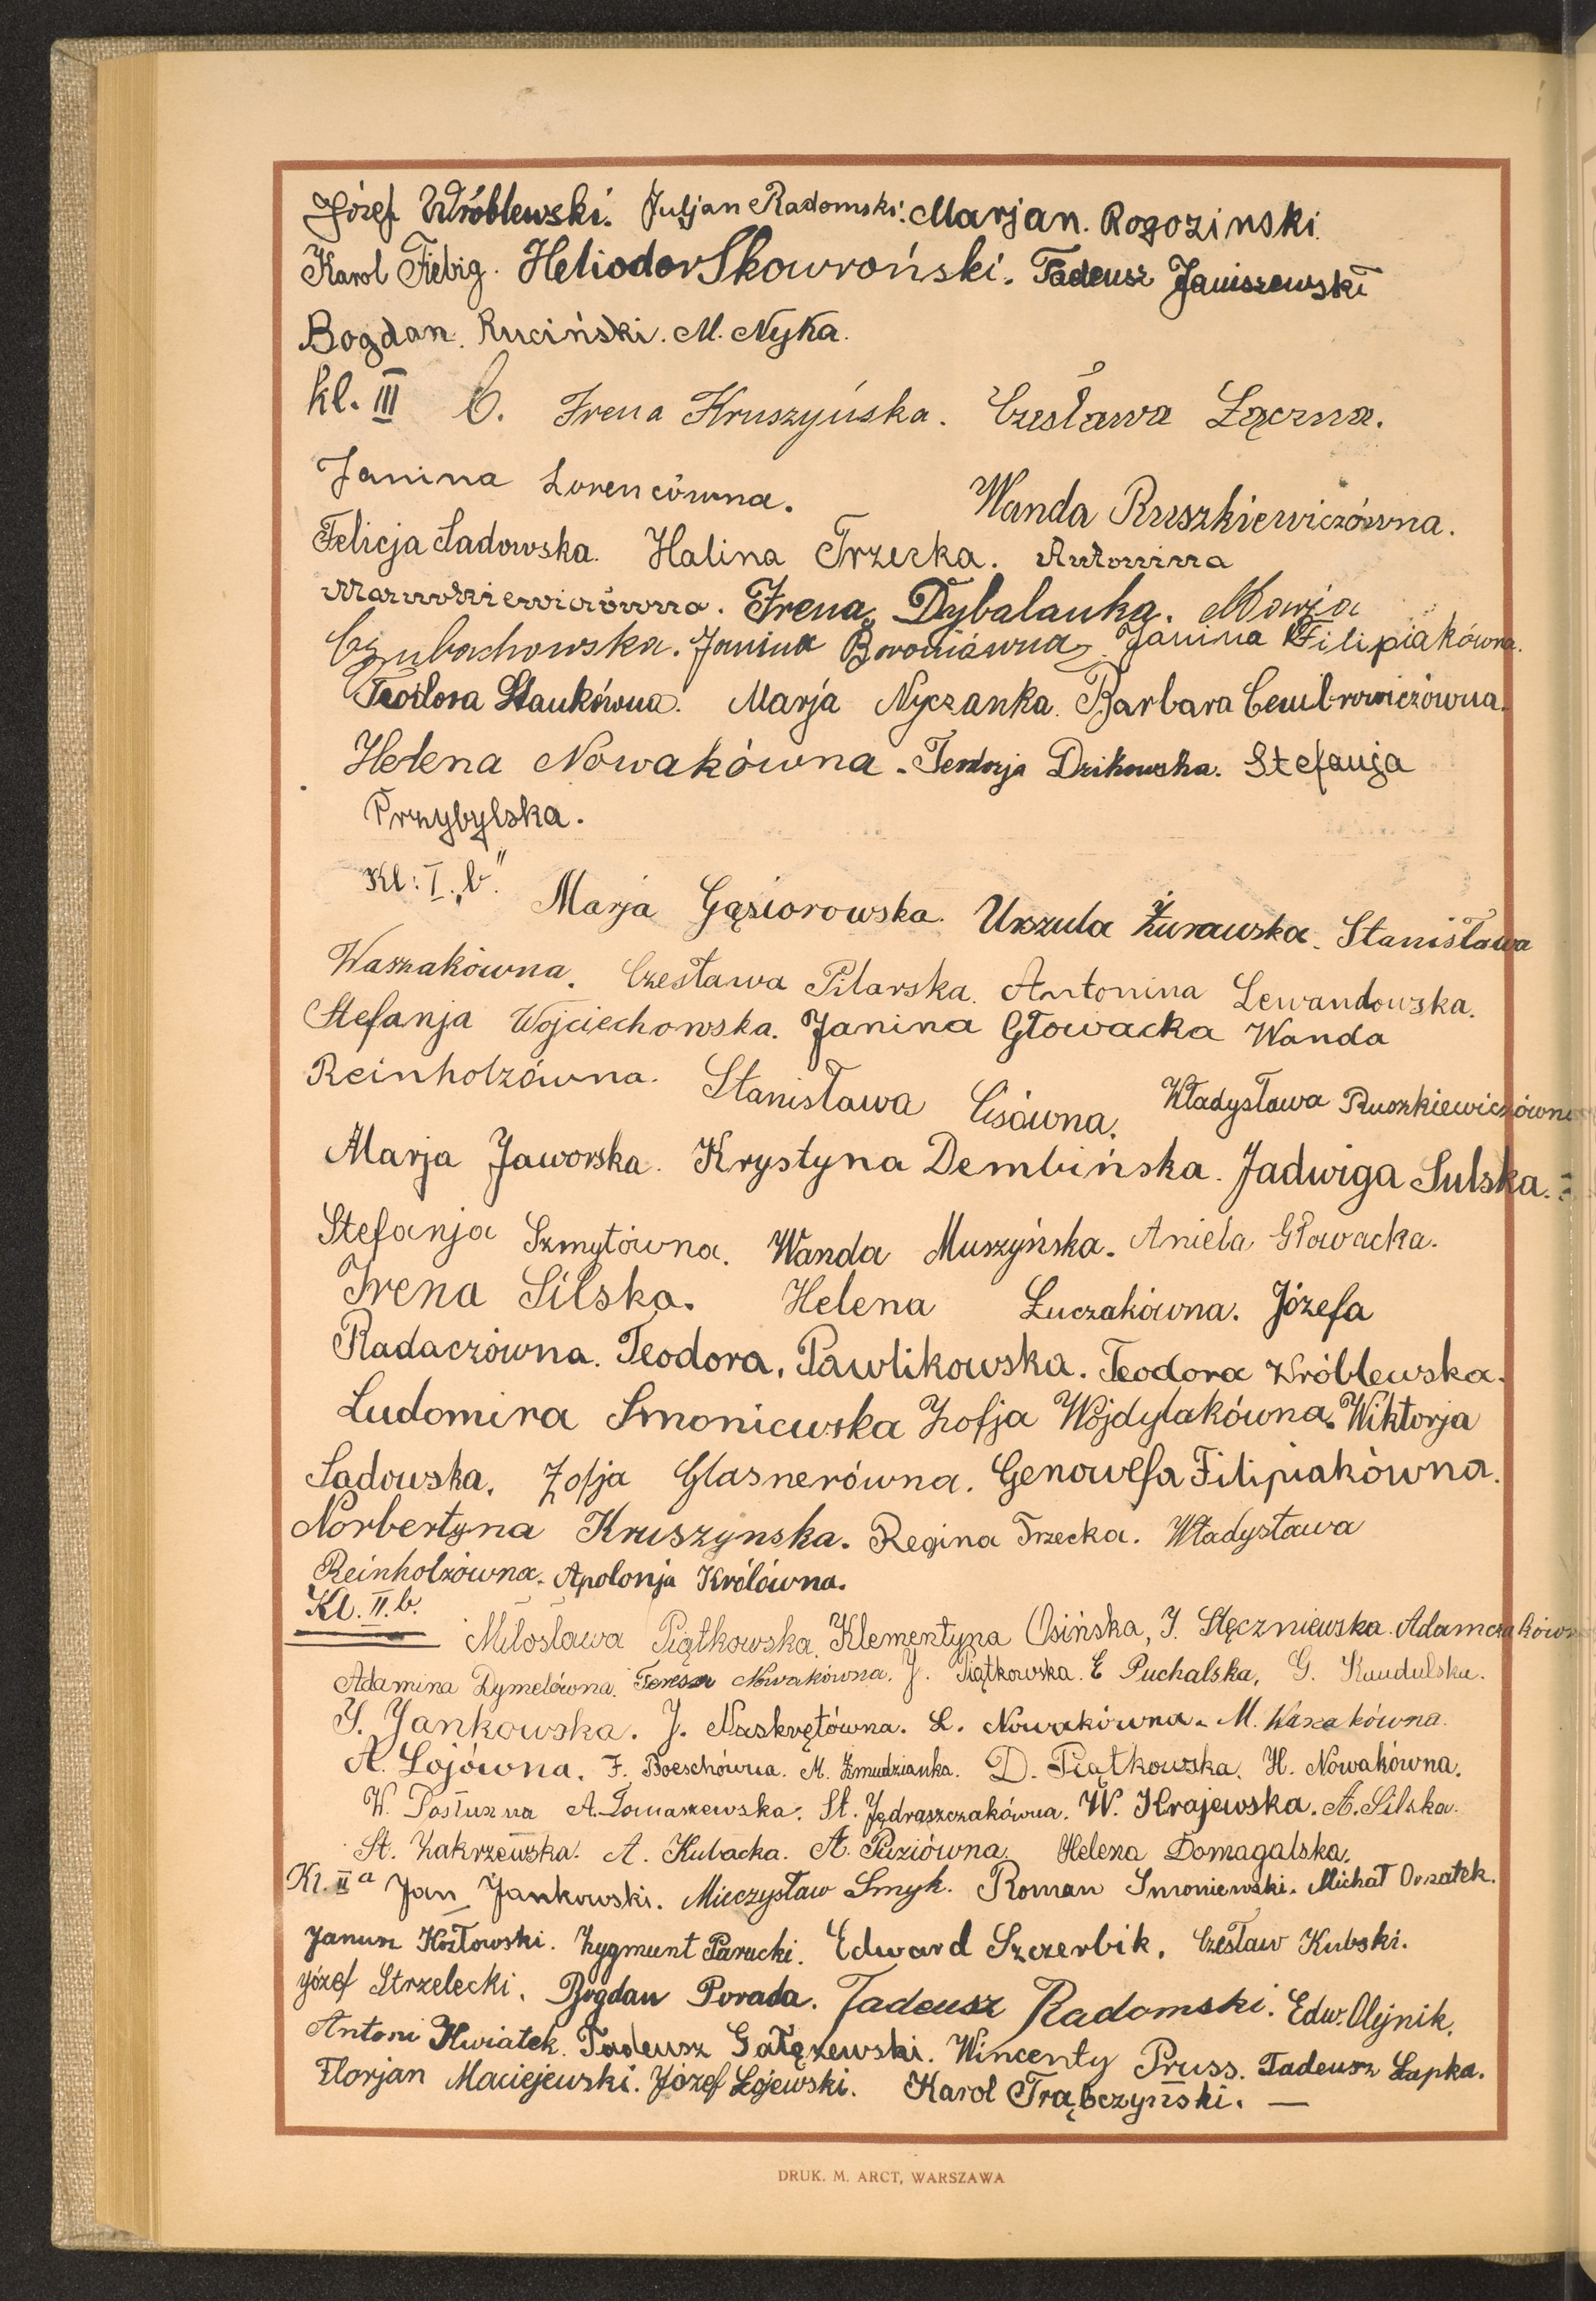 Józef Wróblewski. Juljan Radomski. Marjan. Rogozinski.
Karol Fiebig. Heliodor Skowroński. Tadeusz Janiszewski
Bogdan. Ruciński. M. Nyka.
kl. III b. Irena Kruszyńska. Czesława Łączna.
Janina Lorencówna. Wanda Ruszkiewiczówna.
Felicja Sadowska. Halina Trzecka. Antonina
Irena Dybalanka. Marja
Czubachowska. Janina Janina Filipiakówna.
Teodora Stankówna. Marja Nyczanka. Barbara Cembrowiczówna.
Helena Nowakówna. Teodozja Dzikowska. Stefanja
Przybylska.
Kl: I. „b."
Marja Gąsiorowska. Urszula Żurawska. Stanisława
Waszakówna. Czesława Pilarska. Antonina Lewandowska.
Stefanja Wojciechowska. Janina Głowacka Wanda
Reinholzówna. Stanisława Cisówna. Władysława Ruszkiewiczówna
Marja Jaworska. Krystyna Dembińska. Jadwiga Sulska.
Stefanja Szmytówna. Wanda Muszyńska. Aniela Głowacka.
Irena Silska. Helena Łuczakówna. Józefa
Radaczówna. Teodora, Pawlikowska. Teodora Wróblewska.
Ludomira Smoniewska Zofja Wojdylakówna. Wiktorja
Sadowska. Zofja Glasnerówna. Genowefa Filipiakówna.
Norbertyna Kruszynska. Regina Trzecka. Władysława
Reinholzówna. Apolonja Królówna.
Kl. II. b.
Miłosława Piątkowska. Klementyna Osińska, J. Stęczniewska. Adamczakówna
Adamina Dymelówna. Teresa Nowakówna. J. Piątkowska. E Puchalska, G. Kaudulska.
Y. Jankowska. J. Naskrętówna. L. Nowakówna. M. Waszakówna.
A. Łojówna. F. Boeschówna. M. Żmudzianka. D. Piątkowska. H. Nowakówna.
W. Postuszna A. Tomaszewska. St. Jędraszczakówna. W. Krajewska. A. Silska.
St. Zakrzewska. A. Kubacka. A. Puziówna. Helena Domagalska.
Kl. II a Jan Jankowski. Mieczysław Smyk. Roman Smoniewski. Michał Orszatek.
Janusz Kozłowski. Zygmunt Parucki. Edward Szczerbik. Czesław Kubski.
Józef Strzelecki. Bogdan Porada. Tadeusz Radomski. Edw. Olejnik.
Antoni Kwiatek. Tadeusz Gałęzewski. Wincenty Pruss. Tadeusz Łapka.
Florjan Maciejewski. Józef Łojewski. Karol Trąbczyński. —
DRUK. M. ARCT, WARSZAWA